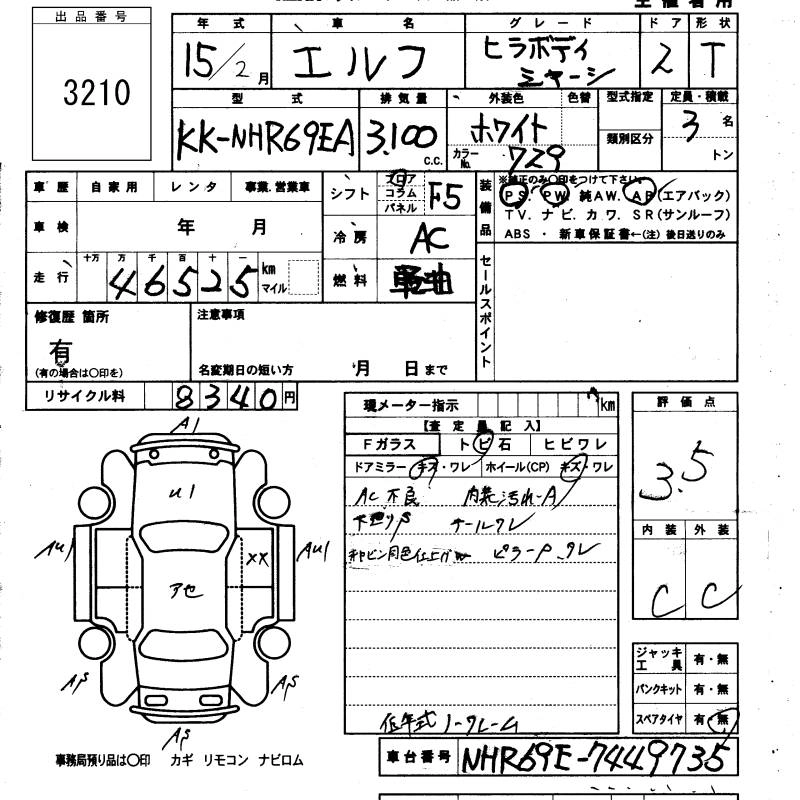 出品番号
3210
年式 車名 グレード ドア 形状
15/2月 エルフ ヒラボディ 2 T
シャーシ
型式 排気量 外装色 色替 型式指定 定員・積載
KK-NHR69EA 3,100 c.c. ホワイト 類別区分 3名
カラーNo. 729 トン
車歴 自家用 レンタ 事業.営業車
車検 年 月
走行 十万 万 千 百 十 一
46525 km
マイル
シフト フロア コラム パネル F5
冷房 AC
燃料 軽油
装備品
※純正のみ〇印をつけて下さい。
PS. PW. 純AW. AB(エアバック)
TV. ナビ. カワ. SR(サンルーフ)
ABS ・ 新車保証書←(注) 後日送りのみ
セールスポイント
修復歴 箇所
有
(有の場合は〇印を)
注意事項
名変期日の短い方 月 日まで
リサイクル料 8340円
現メーター指示 km
【査定員記入】
Fガラス トビ石 ヒビワレ
ドアミラー キズ・ワレ ホイール(CP) キズ・ワレ
AC不良 内装汚れ-A
下廻りS
ピラーP
低年式ノークレーム
評価点
3.5
内装 外装
C C
ジャッキ工具 有・無
パンクキット 有・無
スペアタイヤ 有・無
A1
U1
AU1 XX AU1
アセ
AS AS
AS
事務局預り品は〇印 カギ リモコン ナビロム
車台番号 NHR69E-7449735